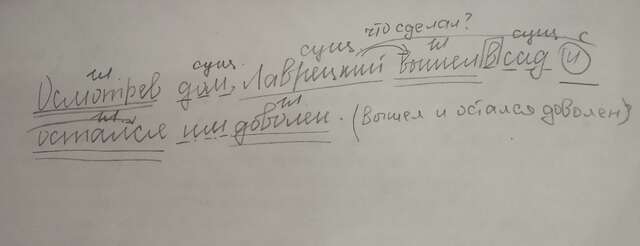 что сделал?
гл сущ. сущ гл сущ с
Осмотрев дом, Лаврецкий вышел в сад и
гл гл
остался им доволен. (вышел и остался доволен)